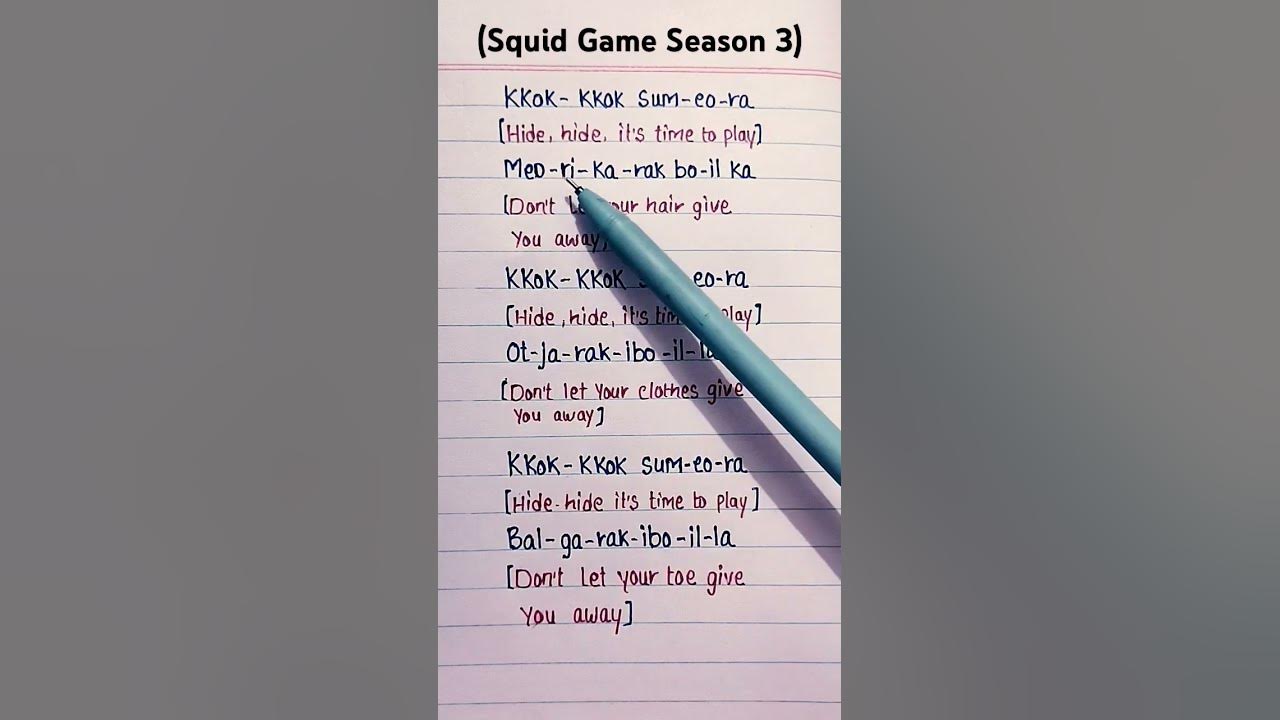 (Squid Game Season 3)
KKOK- KKOK sum-eo-ra
[Hide, hide, it's time to play]
Meo-ri-ka-rak bo-il ka
[Don't hair give
You away]
KKOK-KKOK eo-ra
[Hide, hide, it's play]
Ot-ja-rak-ibo-il-
[Don't let Your clothes give
You away]
KKOK-KKOK sum-eo-ra
[Hide-hide it's time to play]
Bal-ga-rak-ibo-il-la
[Don't let your toe give
You away]